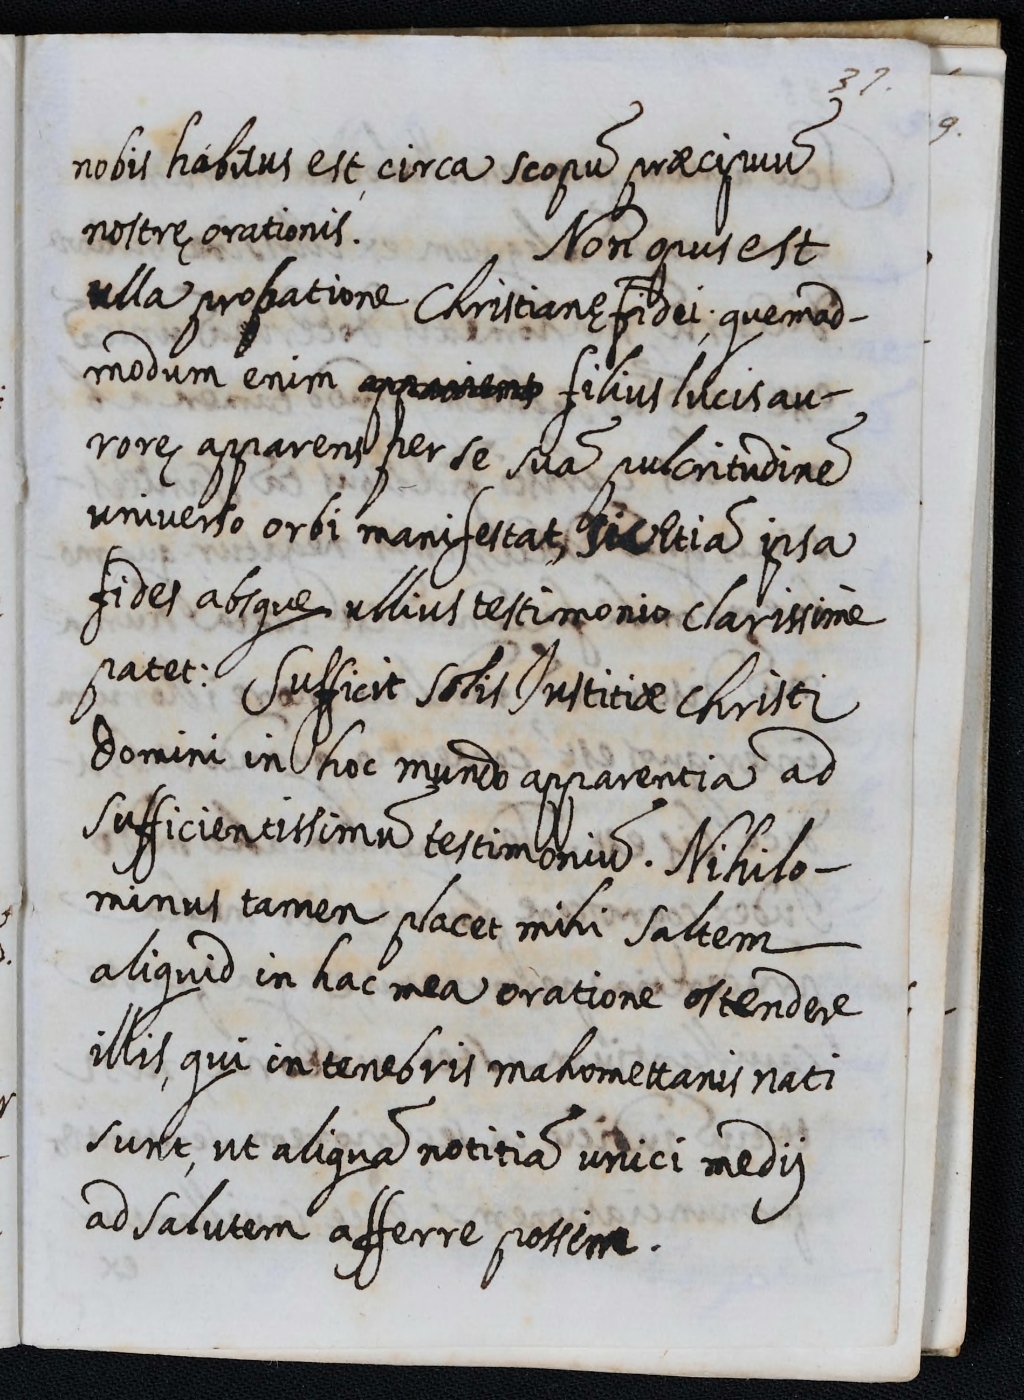 37.
nobis habitus est, circa scopũ præcipuũ
nostrę orationis. Non opus est
ulla probatione Christianę fidei; quemad-
modum enim filius lucis au-
rorę apparens per se suã pulcritudinẽ
universo orbi manifestat, sic etiã ipsa
fides absque ullius testimonio clarissimè
patet: Sufficit solis Justitiæ Christi
Domini in hoc mundo apparentia ad
sufficientissimũ testimoniũ. Nihilo-
minus tamen placet mihi saltem
aliquid in hac mea oratione ostendere
illis, qui in tenebris mahomettanis nati
sunt, ut aliquã notitiã unici medij
ad salutem afferre possim.
9.